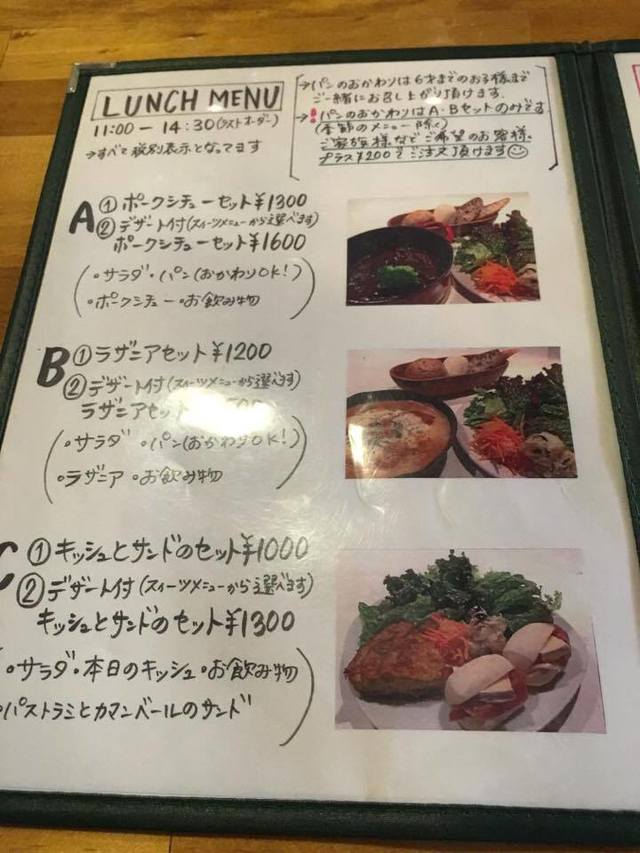 LUNCH MENU
11:00 - 14:30(ラストオーダー)
→すべて税別表示となってます
→パンのおかわりは6才までのお子様まで
ご一緒にお召し上がり頂けます。
→パンのおかわりはA・Bセットのみです。
ご家族様などでご希望のお客様、
プラス¥200でご注文頂けます
A ①ポークシチューセット¥1300
②デザート付(スイーツメニューから選べます)
ポークシチューセット¥1600
・サラダ・パン(おかわりOK!)
・ポークシチュー・お飲み物
B ①ラザニアセット¥1200
②デザート付(スイーツメニューから選べます)
ラザニアセット
・サラダ ・パン(おかわりOK!)
・ラザニア ・お飲み物
C ①キッシュとサンドのセット¥1000
②デザート付(スイーツメニューから選べます)
キッシュとサンドのセット¥1300
・サラダ・本日のキッシュ・お飲み物
・パストラミとカマンベールのサンド